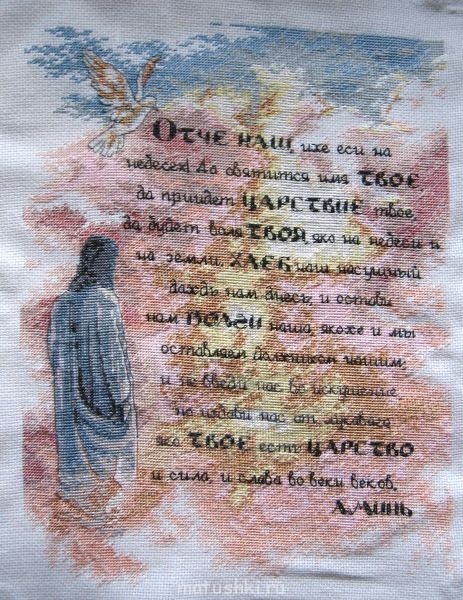 Отче наш, иже еси на
небесех! Да святится имя ТВОЕ,
да приидет ЦАРСТВИЕ твое,
да будет воля ТВОЯ, яко на небеси и
на земли. ХЛЕБ наш насущный
даждь нам днесь; и остави
нам ДОЛГИ наша, якоже и мы
оставляем должником нашим;
и не введи нас во искушение
но избави нас от лукаваго
яко ТВОЕ есть ЦАРСТВО
и сила, и слава во веки веков.
АМИНЬ
matushki.ru